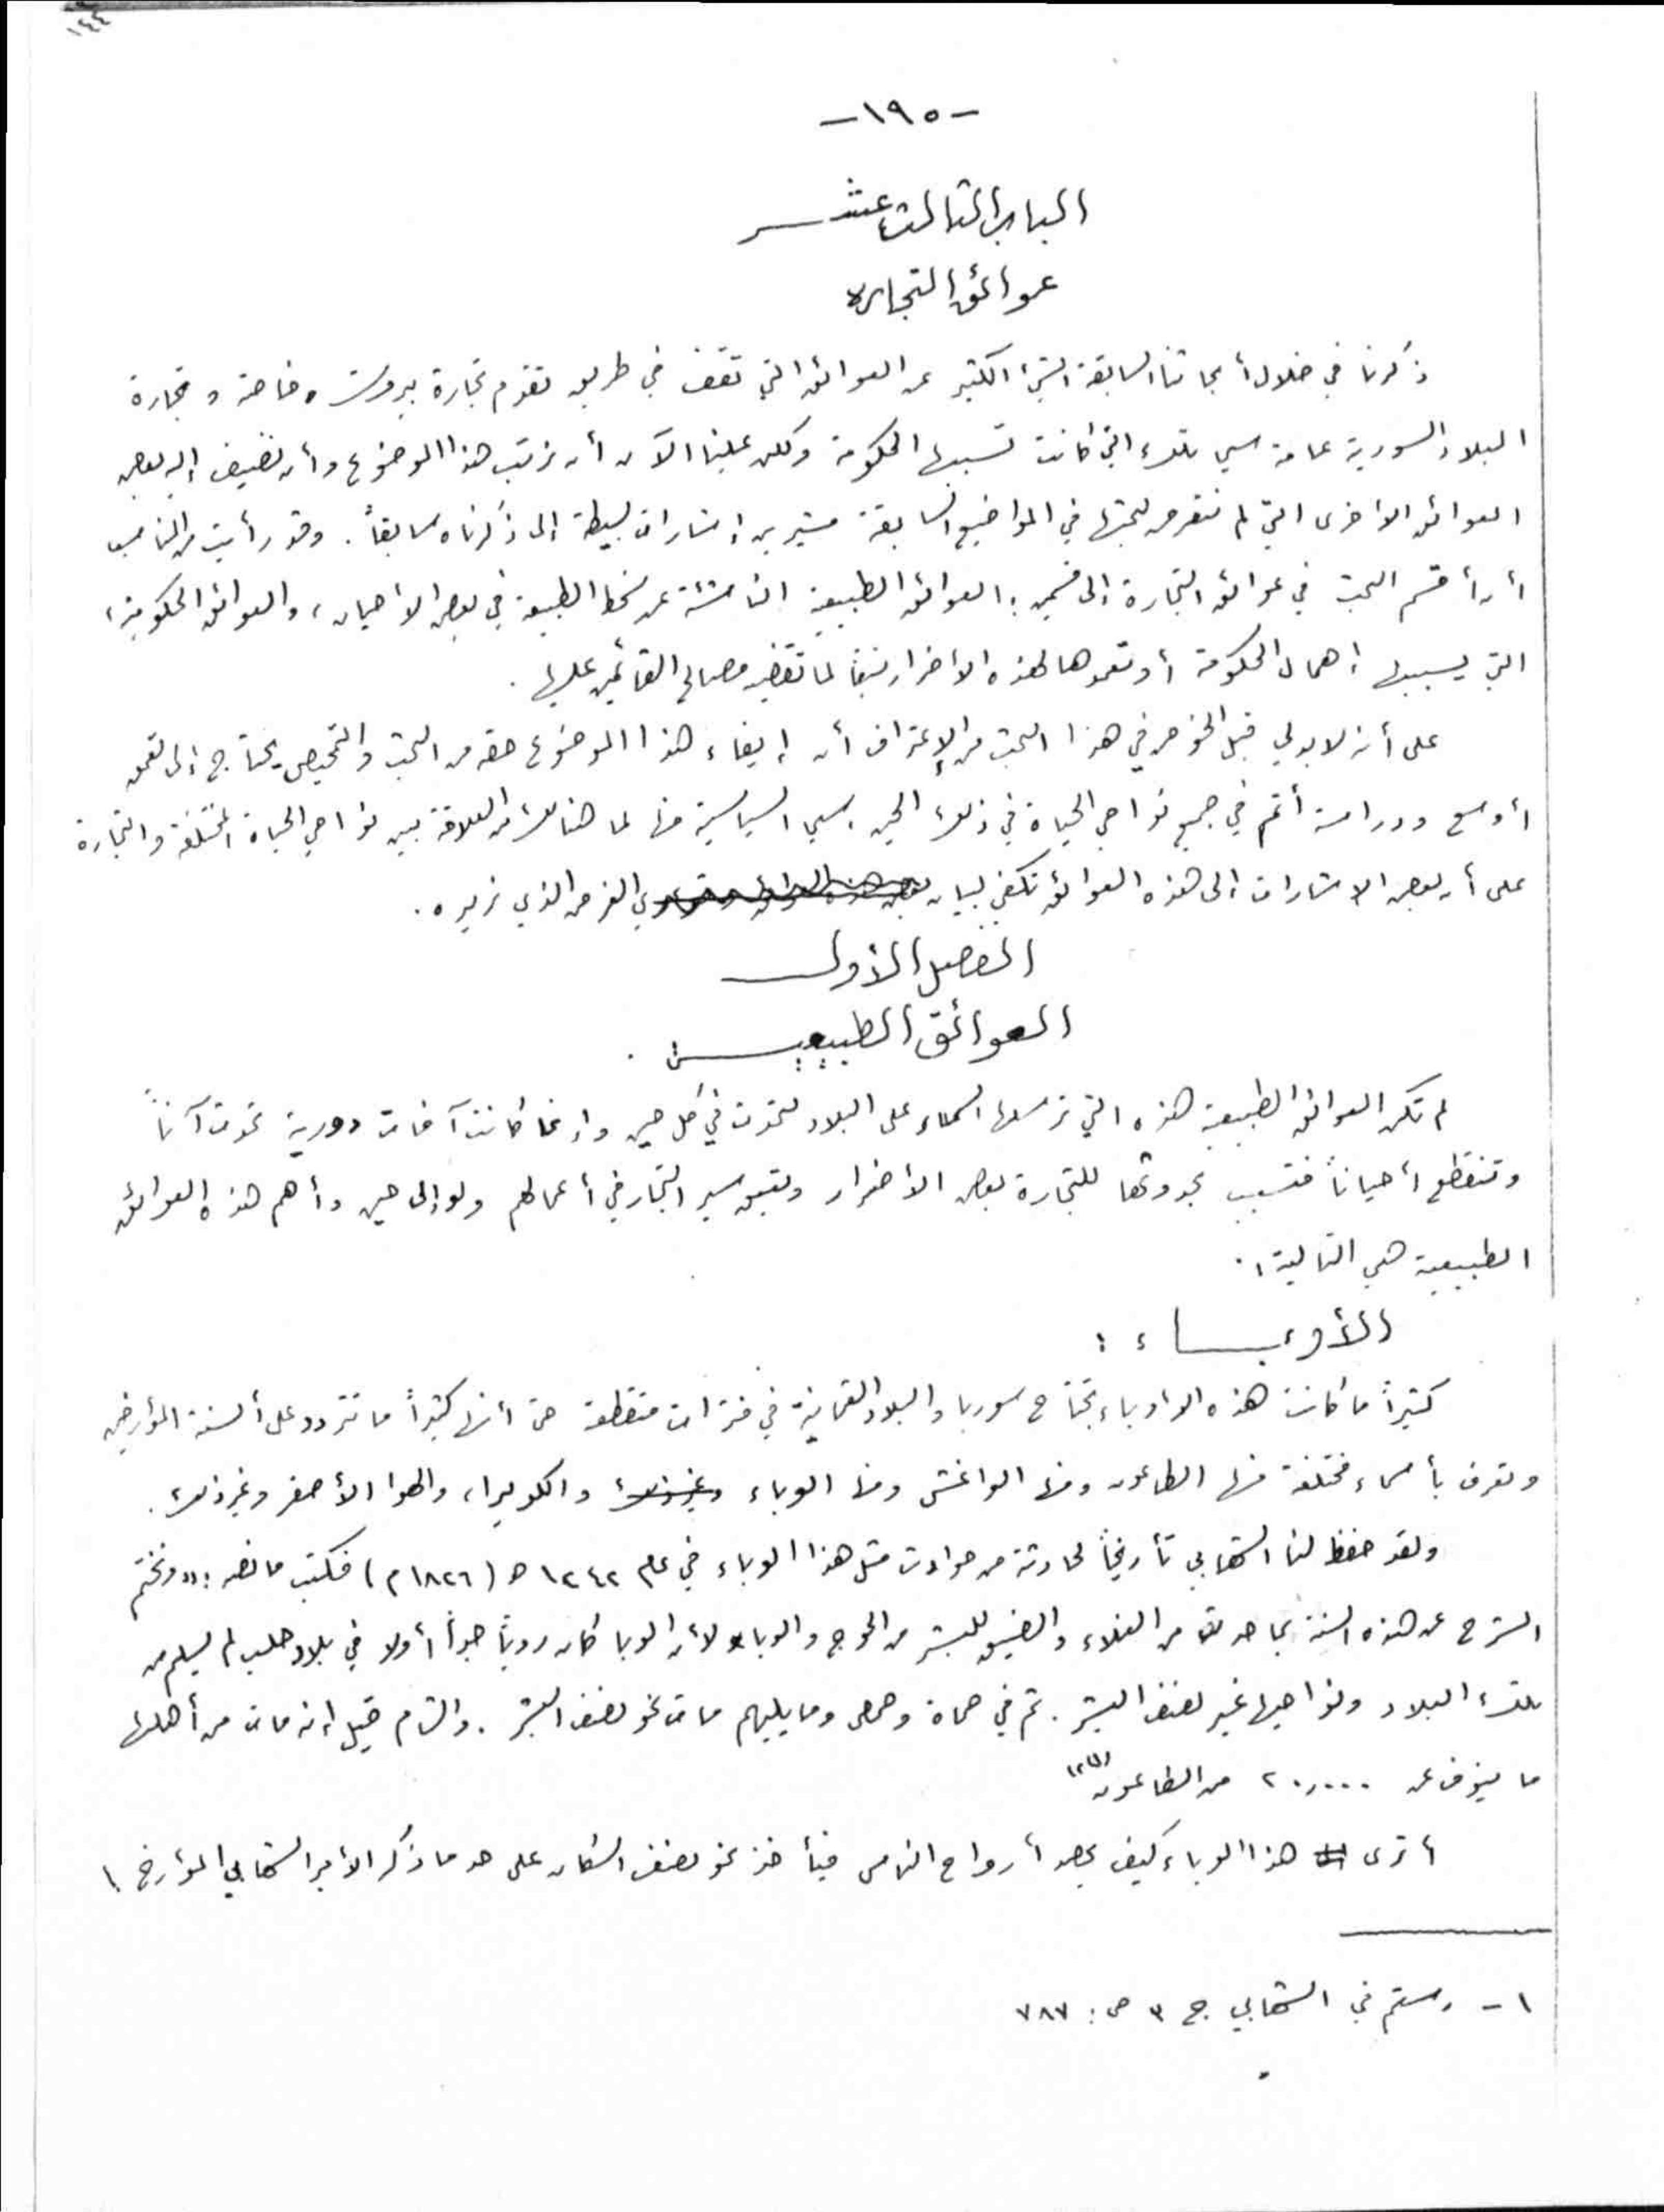 ١٤٤
-١٩٥-
الباب الثالث عشر
عوائق التجارة
ذكرنا في خلال أبحاثنا السابقة الشيء الكثير عن العوائق التي تقف في طريق تقدم تجارة بيروت خاصة و تجارة
البلاد السورية عامة سيما تلك التي كانت تسببها الحكومة ولكن علينا الآن أن نرتب هذا الموضوع وأن نضيف إليه بعض
العوائق الأخرى التي لم نتعرض لبحثها في المواضيع السابقة مشيرين إشارات بسيطة إلى ذكرناه سابقاً. وقد رأيت من المناسب
أن أقسم البحث في عوائق التجارة إلى قسمين: العوائق الطبيعية الناشئة عن سخط الطبيعة في بعض الأحيان، والعوائق الحكومية،
التي يسببها إهمال الحكومة أو تعمدها لهذه الأضرار تبعاً لما تقضيه مصالح القائمين عليها.
على أنه لا بد لي قبل الخوض في هذا البحث من الإعتراف أن إيفاء هذا الموضوع حقه من البحث والتمحيص يحتاج إلى تعمق
أوسع ودراسة أتم في جميع نواحي الحياة في ذلك الحين. سيما السياسية منها لما هنالك من العلاقة بين نواحي الحياة المختلفة والتجارة
على أن بعض الاشارات إلى هذه العوائق تكفي لبيان الغرض الذي نريده.
الفصل الأول
العوائق الطبيعية.
لم تكن العوائق الطبيعية هذه التي ترسلها السماء على البلاد لتحدث في كل حين وإنما كانت آفات دورية تحدث آناً
وتنقطع أحياناً فتسبب بحدوثها للتجارة بعض الأضرار وتعيق سير التجار في أعمالهم ولو إلى حين وأهم هذه العوائق
الطبيعية هي التالية:
الأوبـــاء :
كثيراً ما كانت هذه الاوباء تجتاح سوريا والبلاد العثمانية في فترات متقطعة حتى أنها كثيراً ما تتردد على ألسنة المؤرخين
وتعرف بأسماء مختلفة منها الطاعون ومنها الواغش ومنها الوباء والكوليرا، والهوا الأصفر وغير ذلك.
ولقد حفظ لنا الشهابي تأريخاً لحادثة من حوادث مثل هذا الوباء في عام ١٢٤٢ ه (١٨٢٦ م) فكتب ما نصه: «ونختم
الشرح عن هذه السنة بما حدث من الغلاء والضيق للبشر من الحوج والوباء لأن الوبا كان رديّاً جداً أولا في بلاد حلب لم يسلم من
تلك البلاد ونواحيها غير نصف البشر. ثم في حماة وحمص وما يليهم مات نحو نصف البشر. والشام قيل إنه مات من أهلها
ما ينوف عن ٢٠,٠٠٠ من الطاعون»(١)
أترى هذا الوباء كيف يحصد أرواح الناس فيأخذ نحو نصف السكان على حد ما ذكر الأمير الشهابي المؤرخ!
١ - رستم في الشهابي ج ٣ ص: ٧٨٧